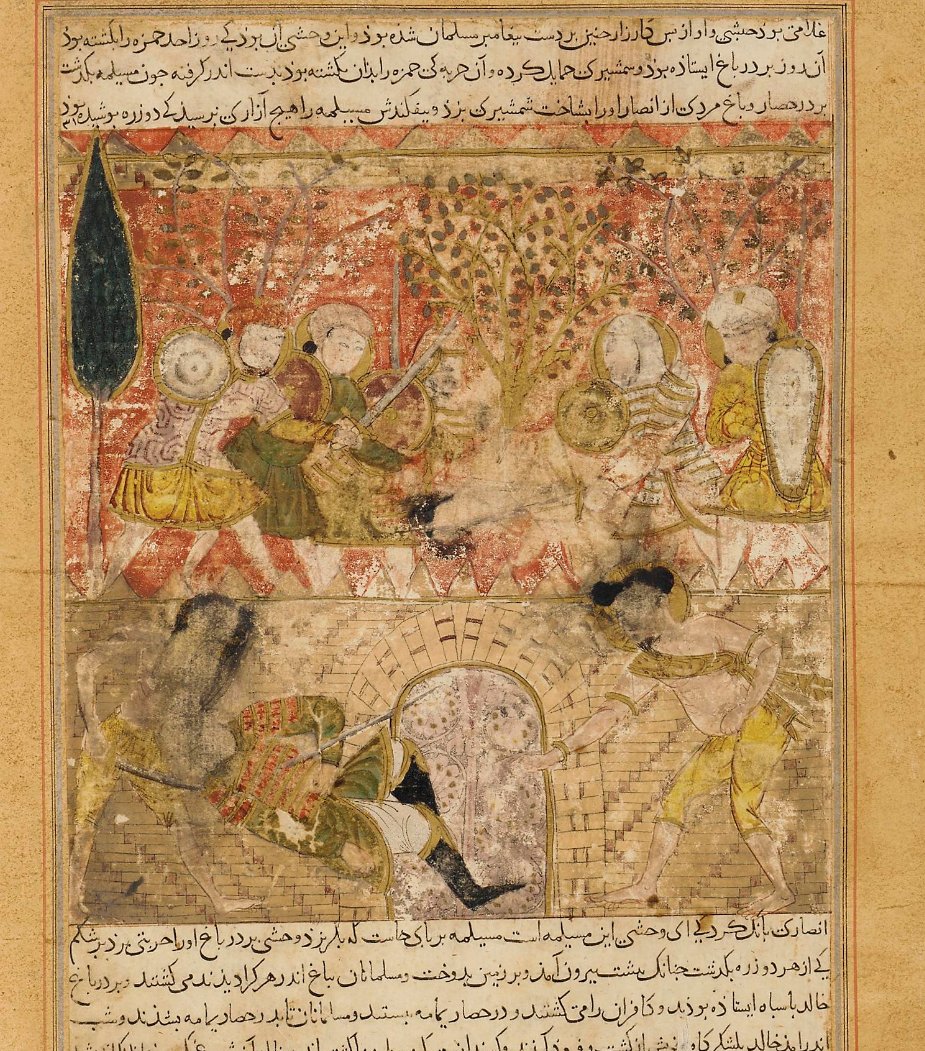 غلامی بوذ حبشی و او از پس کارزار حنین بر دست پیغامبر مسلمان شده بوذ و این وحشی آن بوذ کی روز احد حمزه را بکشته بوذ
آن روز بر در باغ ایستاذه بوذ و شمشیری حمایل کرده و آن حربه کی حمزه را بذان بکشته بوذ بدست اندر کرفته جون مسیلمه بکذشت
بر در حصار و باغ مردی از انصار او را بشناخت شمشیری بزذ و بیفکندش مسیلمه را هیج آزاری نرسیذ کی دو زره بوشیده بوذ
انصاری بانک کرد کی ای وحشی این مسیلمه است مسیلمه بر بای خاست که بکریزذ وحشی بر در باغ او را حربتی بزذ بر شکم
کی از هر دو زره بکذشت جنانک بشت بیرون آمذ و بر زمین بدوخت و مسلمانان بباغ اندر هر کرا دیذند می کشتند و بر در باغ
خالد با سباه ایستاذه بوذند و کافران را می کشتند و در حصار یمامه ببستند و مسلمانان تا بدر حصار یمامه بشذند و شب
اندر آمذ خالد بلشکرکاه